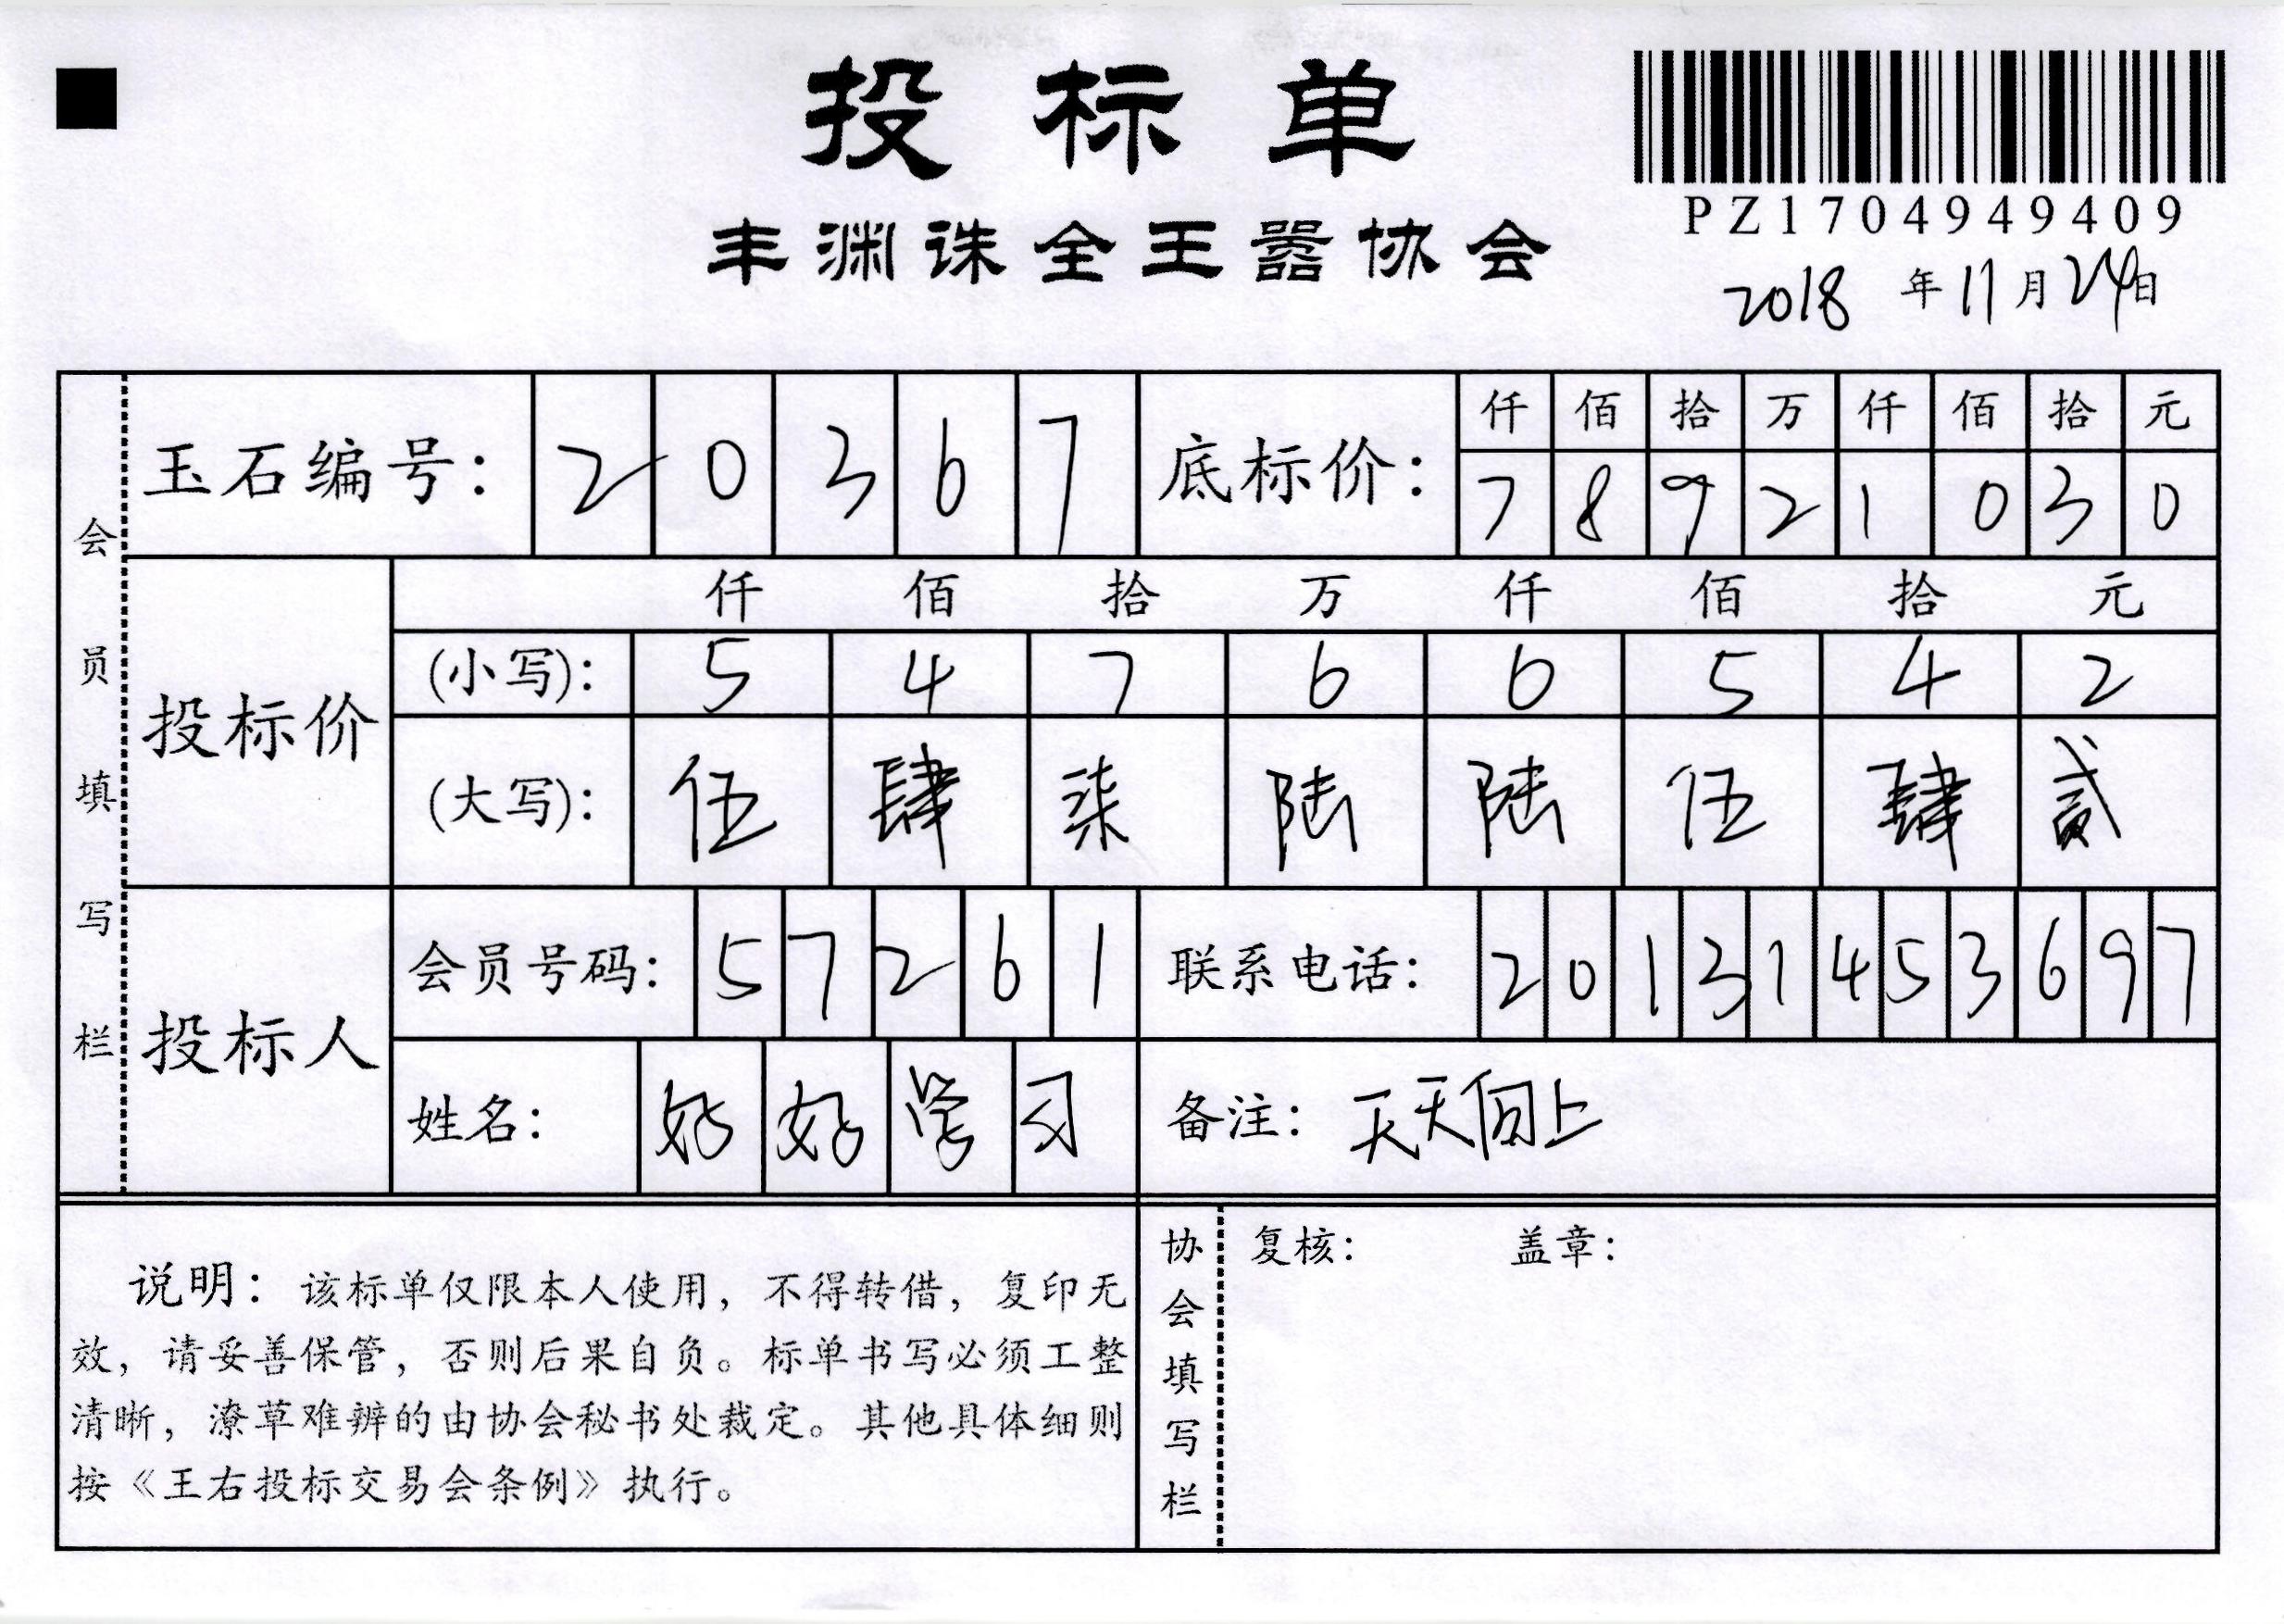 投标单
丰渊诛全王嚣协会
PZ1704949409
2018 年 11 月 24 日
会员填写栏
玉石编号： 2 0 3 6 7
底标价： 仟 佰 拾 万 仟 佰 拾 元
7 8 9 2 1 0 3 0
投标价
仟 佰 拾 万 仟 佰 拾 元
(小写)： 5 4 7 6 6 5 4 2
(大写)： 伍 肆 柒 陆 陆 伍 肆 贰
投标人
会员号码： 5 7 2 6 1
联系电话： 2 0 1 3 1 4 5 3 6 9 7
姓名： 好 好 学 习
备注： 天天向上
说明：该标单仅限本人使用，不得转借，复印无
效，请妥善保管，否则后果自负。标单书写必须工整
清晰，潦草难辨的由协会秘书处裁定。其他具体细则
按《王右投标交易会条例》执行。
协会填写栏
复核： 盖章：